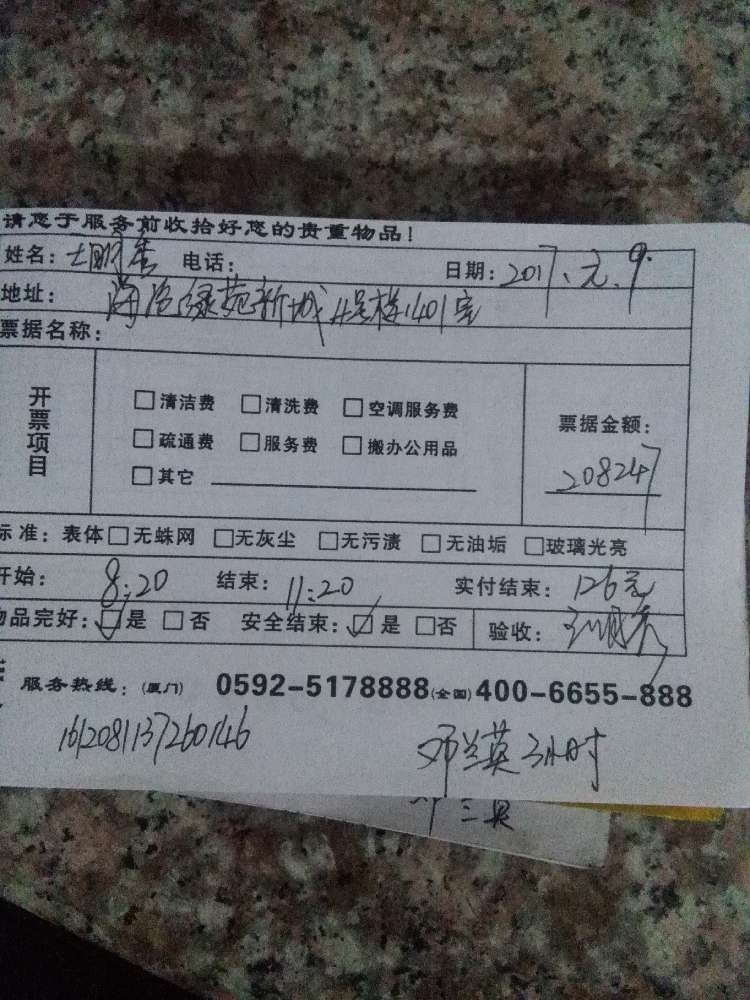 请您于服务前收拾好您的贵重物品！
姓名： 电话： 日期：2017、元、9.
地址：海沧绿苑新城4号楼1401室
票据名称：
开票项目
□清洁费 □清洗费 □空调服务费
□疏通费 □服务费 □搬办公用品
□其它
票据金额：
208247
标准：表体□无蛛网 □无灰尘 □无污渍 □无油垢 □玻璃光亮
开始：8:20 结束：11:20 实付结束：126元
物品完好：☑是 □否 安全结束：☑是 □否 验收：
服务热线：(厦门) 0592-5178888(全国)400-6655-888
1612081137260146
邓兰英 3小时